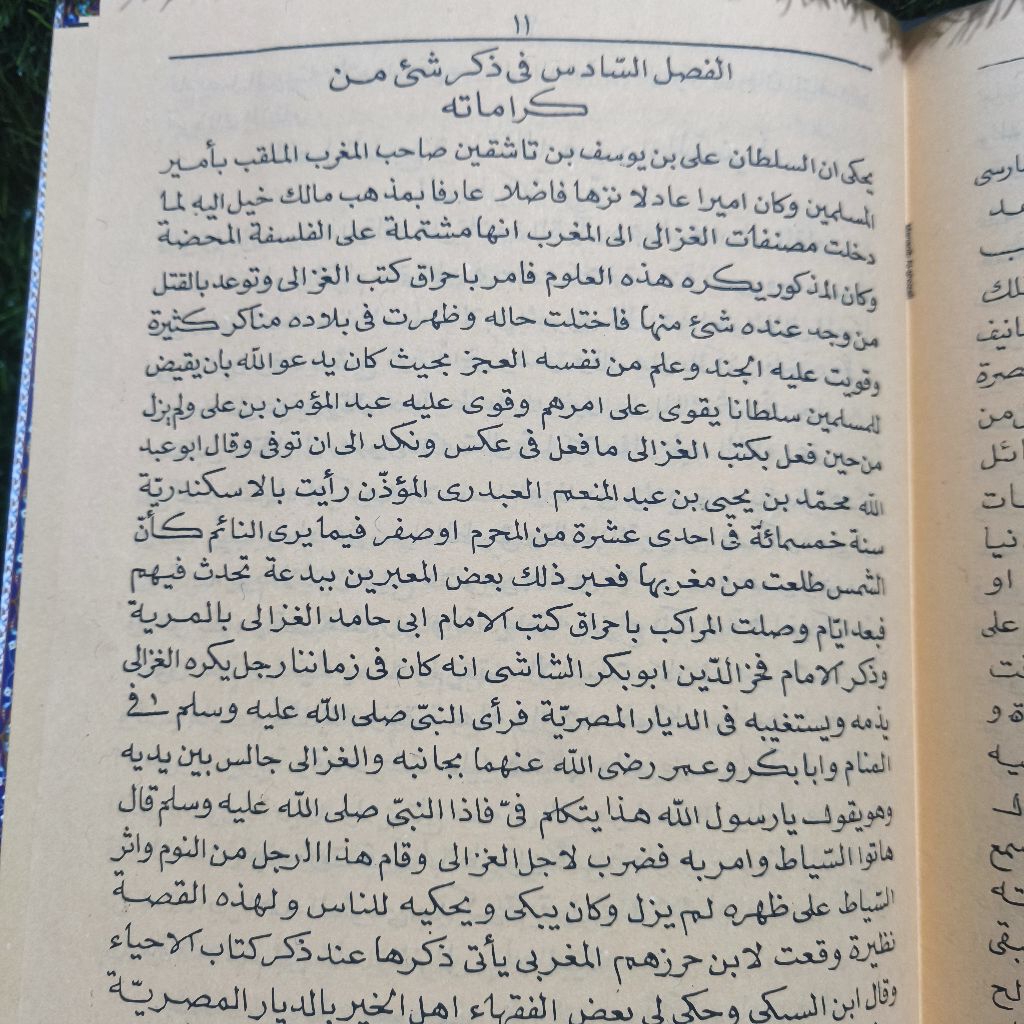 ١١
الفصل السّادس فى ذكر شئ من
كراماته
يحكى ان السلطان على بن يوسف بن تاشقين صاحب المغرب الملقب بأمير
المسلمين وكان اميرا عادلا نزها فاضلا عارفا بمذهب مالك خيل اليه لما
دخلت مصنفات الغزالى الى المغرب انها مشتملة على الفلسفة المحضة
وكان المذكور يكره هذه العلوم فامر باحراق كتب الغزالى وتوعد بالقتل
من وجد عنده شئ منها فاختلت حاله وظهرت فى بلاده مناكر كثيرة
وقويت عليه الجند وعلم من نفسه العجز بحيث كان يدعو الله بان يقيض
للمسلمين سلطانا يقوى على امرهم وقوى عليه عبد المؤمن بن على ولم يزل
من حين فعل بكتب الغزالى ما فعل فى عكس ونكد الى ان توفى وقال ابو عبد
الله محمّد بن يحيى بن عبد المنعم العبدرى المؤذّن رأيت بالاسكندريّة
سنة خمسمائة فى احدى عشرة من المحرم او صفر فيما يرى النائم كأنّ
الشمس طلعت من مغربها فعبر ذلك بعض المعبرين ببدعة تحدث فيهم
فبعد ايّام وصلت المراكب باحراق كتب الامام ابى حامد الغزالى بالمرية
وذكر الامام فخر الدّين ابوبكر الشاشى انه كان فى زماننا رجل يكره الغزالى
يذمه ويستغيبه فى الديار المصريّة فرأى النبىّ صلى الله عليه وسلم فى
المنام وابابكر وعمر رضى الله عنهما بجانبه والغزالى جالس بين يديه
وهو يقول يارسول الله هذا يتكلم فىّ فاذا النبىّ صلى الله عليه وسلم قال
هاتوا السّياط وامر به فضرب لاجل الغزالى وقام هذا الرجل من النوم واثر
السّياط على ظهره لم يزل وكان يبكى ويحكيه للناس ولهذه القصة
نظيرة وقعت لابن حرزهم المغربى يأتى ذكرها عند ذكر كتاب الاحياء
وقال ابن السبكى وحكى لى بعض الفقهاء اهل الخير بالديار المصريّة